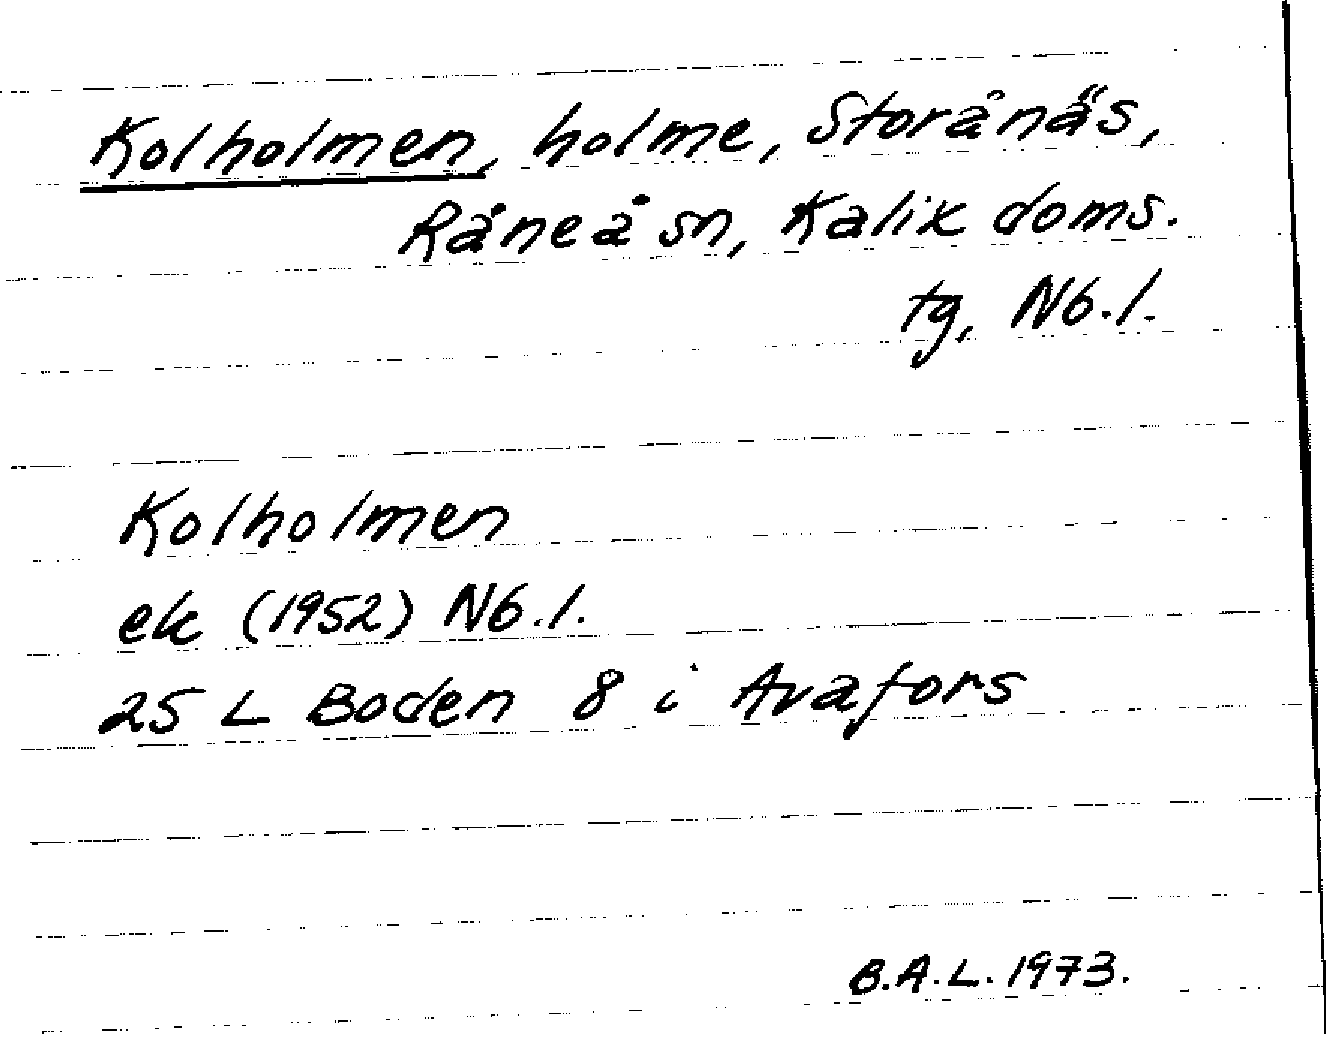 Kolholmen, holme, Storånäs,
Råneå sn, Kalix doms.
tg, Nb.l.
Kolholmen
ek (1952) Nb.l.
25 L Boden 8 i Avafors
B.A.L. 1973.